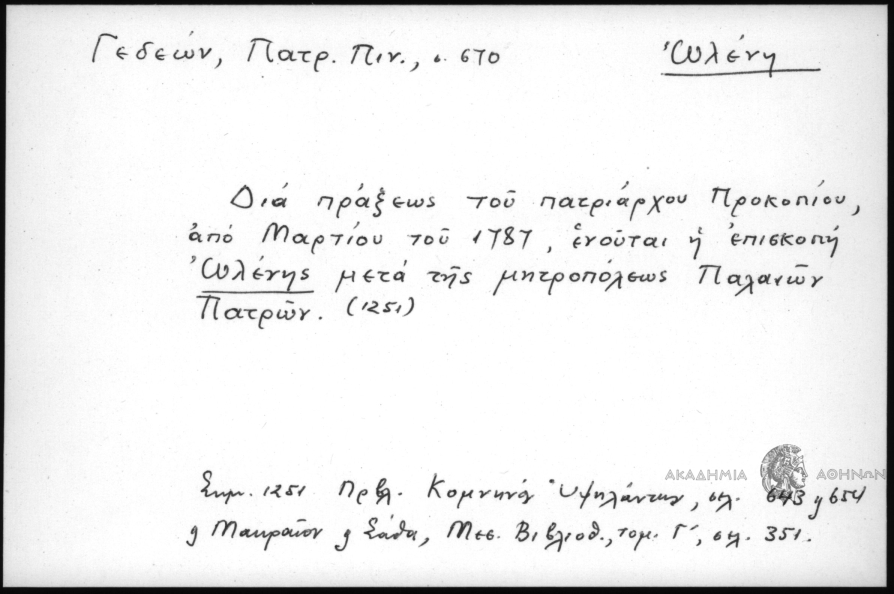 Γεδεών, Πατρ. Πιν., σ. 670 Ὠλένη
Διά πράξεως τοῦ πατριάρχου Προκοπίου,
ἀπό Μαρτίου τοῦ 1787, ἑνοῦται ἡ ἐπισκοπή
Ὠλένης μετά τῆς μητροπόλεως Παλαιῶν
Πατρῶν. (1251)
ΑΚΑΔΗΜΙΑ ΑΘΗΝΩΝ
Σημ. 1251 Πρβλ. Κομνηνόν Ὑψηλάντην, σελ. 643 ϗ 654
ϗ Μακραῖον ϗ Σάθα, Μεσ. Βιβλιοθ., τομ. Γ΄, σελ. 351.